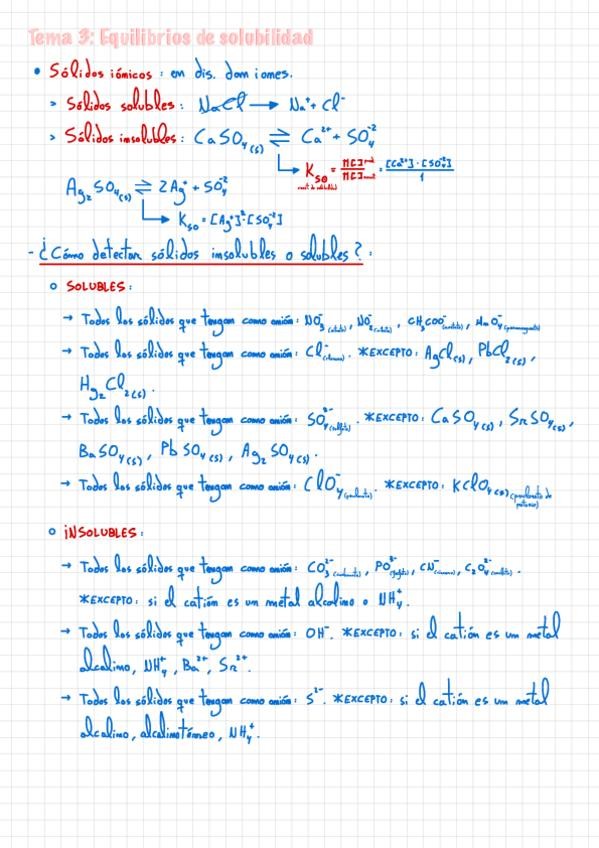 Tema 3: Equilibrios de solubilidad
• Sólidos iónicos: en dis. dan iones.
> Sólidos solubles: NaCl → Na⁺ + Cl⁻
> Sólidos insolubles: CaSO₄(s) ⇌ Ca²⁺ + SO₄⁻²
↳ Kso = Π[ ]prod / Π[ ]react = [Ca²⁺]·[SO₄⁻²] / 1
Ag₂SO₄(s) ⇌ 2Ag⁺ + SO₄⁻²
↳ Kso = [Ag⁺]²·[SO₄⁻²]
- ¿Cómo detectar sólidos insolubles o solubles?:
o SOLUBLES:
→ Todos los sólidos que tengan como anión: NO₃⁻ (nitrato), NO₂⁻, CH₃COO⁻ (acetato), MnO₄⁻ (permanganato)
→ Todos los sólidos que tengan como anión: Cl⁻ (cloruro). *EXCEPTO: AgCl(s), PbCl₂(s),
Hg₂Cl₂(s).
→ Todos los sólidos que tengan como anión: SO₄⁻² (sulfato). *EXCEPTO: CaSO₄(s), SrSO₄(s),
BaSO₄(s), PbSO₄(s), Ag₂SO₄(s).
→ Todos los sólidos que tengan como anión: ClO₄⁻ (perclorato). *EXCEPTO: KClO₄(s) (perclorato de potasio)
o INSOLUBLES:
→ Todos los sólidos que tengan como anión: CO₃²⁻ (carbonato), PO₄³⁻ (fosfato), CN⁻ (cianuro), C₂O₄²⁻ (oxalato).
*EXCEPTO: si el catión es un metal alcalino o NH₄⁺.
→ Todos los sólidos que tengan como anión: OH⁻. *EXCEPTO: si el catión es un metal
alcalino, NH₄⁺, Ba²⁺, Sr²⁺.
→ Todos los sólidos que tengan como anión: S²⁻. *EXCEPTO: si el catión es un metal
alcalino, alcalinotérreo, NH₄⁺.